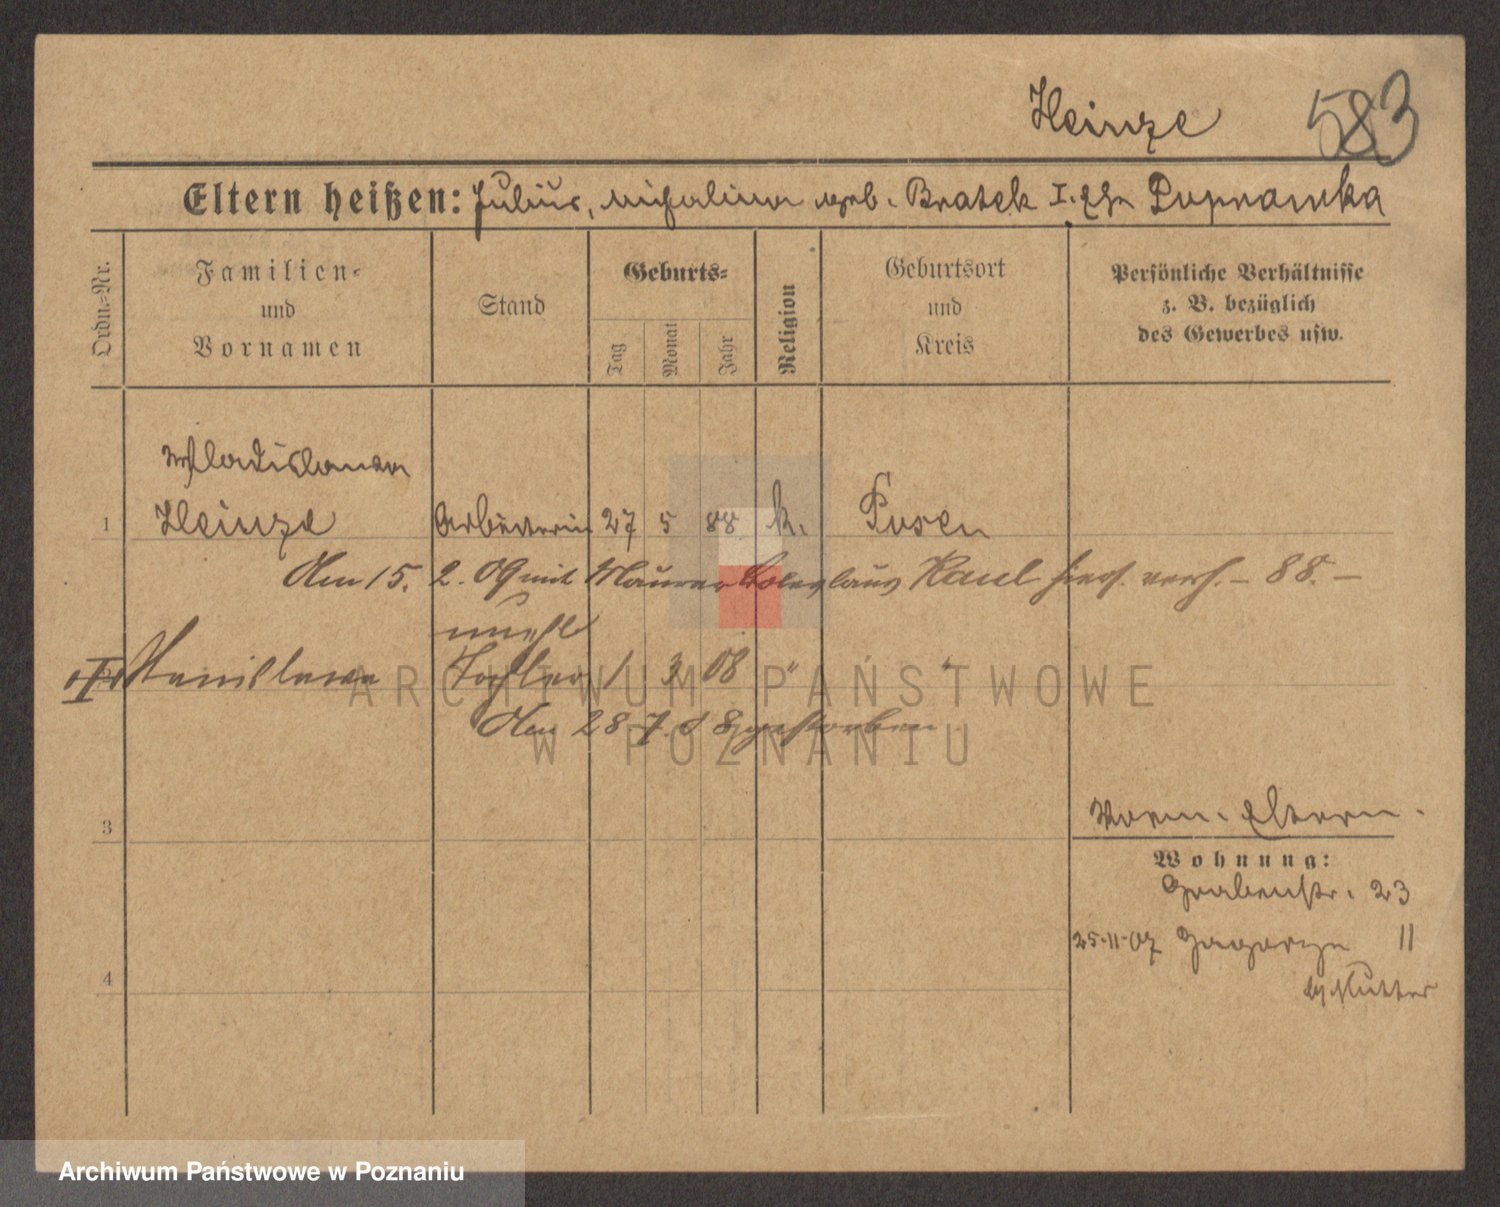 Heinze 583
Eltern heißen: Julius, Michalina geb. Bratek I. Ehe
Ordn.-Nr.
Familien-
und
Vornamen
Stand
Geburts-
Tag
Monat
Jahr
Religion
Geburtsort
und
Kreis
Persönliche Verhältnisse
z. B. bezüglich
des Gewerbes usw.
Wladislawa
1 Heinze Arbeiterin 27 5 88 k. Posen
Am 15. 2. 09 mit Maurer Boleslaus hier verh. - 88. -
unehl
Stanislawa Tochter 1 3 08 " "
Am 28. 7. 08 gestorben
3
Vorm. Eltern.
Wohnung:
Grabenstr. 23
4
25.11.07 11
b/ Mutter
ARCHIWUM PAŃSTWOWE
W POZNANIU
Archiwum Państwowe w Poznaniu